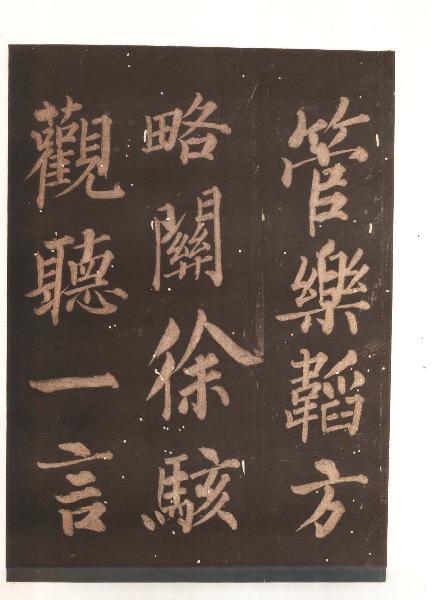 管樂韜方
略關徐駭
觀聽一言